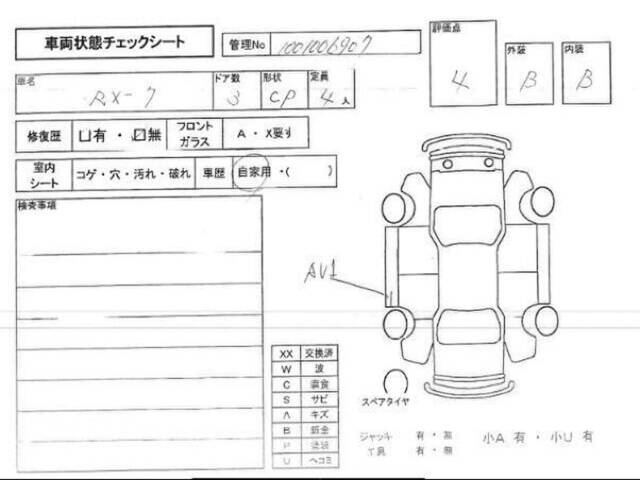 車両状態チェックシート
管理No 1001006907
評価点 4
外装 B
内装 B
車名 RX-7
ドア数 3
形状 CP
定員 4人
修復歴 凵有・☑無
フロントガラス A・X要す
室内シート コゲ・穴・汚れ・破れ
車歴 自家用・( )
検査事項
AU1
XX 交換済
W 波
C 腐食
S サビ
A キズ
B 鈑金
P 塗装
U ヘコミ
スペアタイヤ
ジャッキ 有・無
工具 有・無
小A 有・小U 有